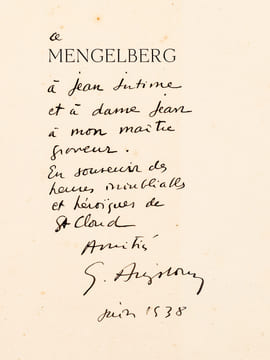 ce
MENGELBERG
à jean intime
et à dame jean
à mon maître
graveur.
En souvenir des
heures inoubliables
et héroïques de
St Cloud
Amitiés
G.
juin 1938